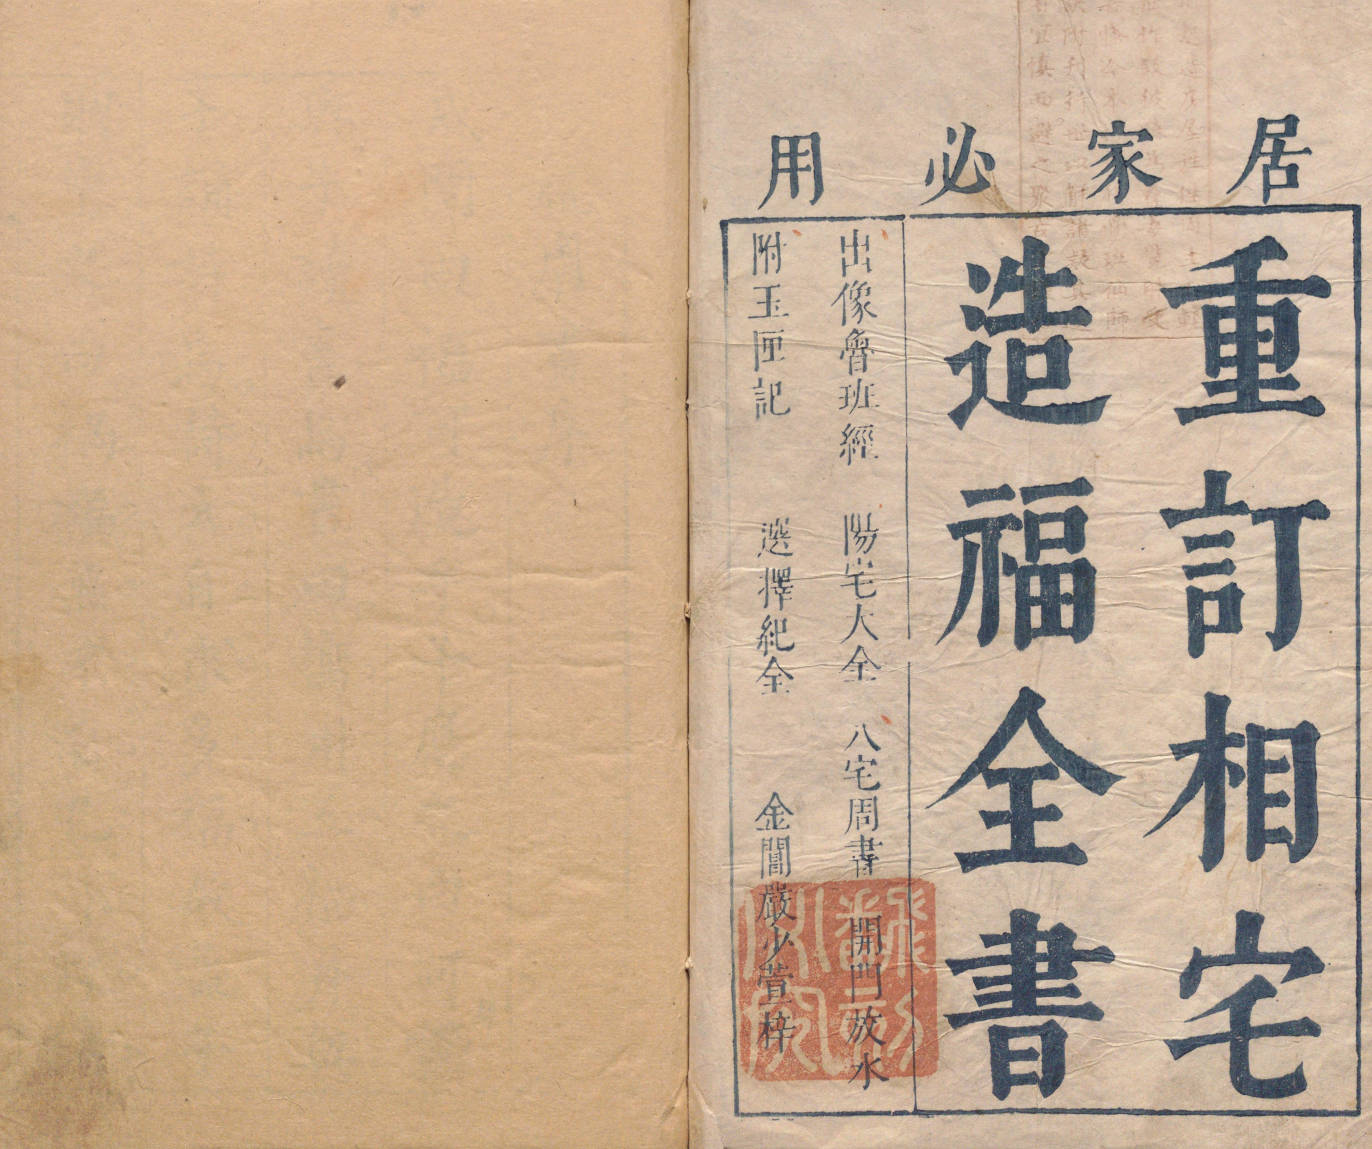 居家必用
重訂相宅
造福全書
出像魯班經 陽宅大全 八宅周書 開門放水
附玉匣記 選擇紀全 金閶嚴少萱梓
飜刻必究